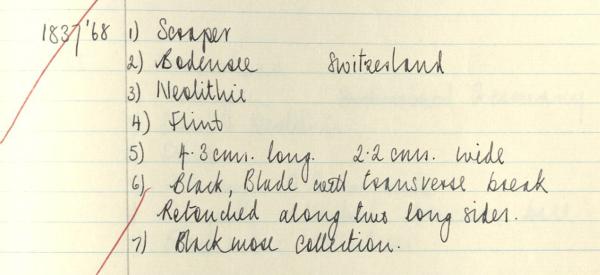 1837/'68 1) Scraper
2) Bodensee Switzerland
3) Neolithic
4) Flint
5) 4.3 cms. long. 2.2 cms. wide
6) Black, Blade with transverse break
Retouched along two long sides.
7) Blackmore collection.